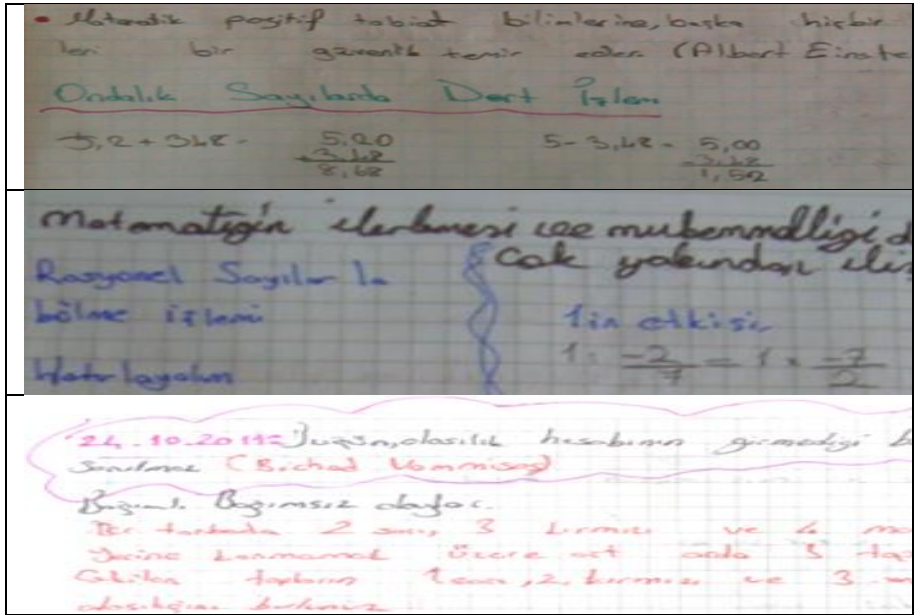 • Matematik pozitif tabiat bilimlerine, başka hiçbir
leri bir güvenlik temin eder. (Albert Einste
Ondalık Sayılarda Dört İşlem
5,2 + 3,48 = 5,20 + 3,48 8,68
5 - 3,48 = 5,00 - 3,48 1,52
Matematiğin ilerlemesi ve mükemmelliği d
çok yakından iliş
Rasyonel Sayılar la
bölme işlemi
1 in etkisi
Hatırlayalım
24.10.201 Bugün, olasılık hesabının girmediği b
Bağımlı, Bağımsız olaylar.
Bir torbada 2 sarı, 3 kırmızı ve 4 ma
Yerine konmamak üzere art arda 3 top
Çekilen topların 1. sarı, 2. kırmızı ve 3. m
olasılığını bulunuz